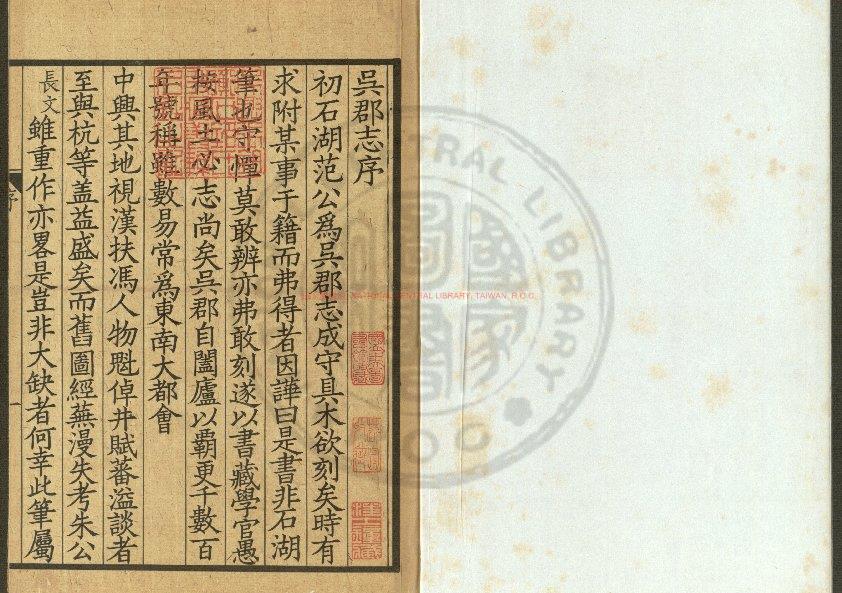 吳郡志序
初石湖范公爲吳郡志成守具木欲刻矣時有
求附某事于籍而弗得者因譁曰是書非石湖
筆也守憚莫敢辨亦弗敢刻遂以書藏學官愚
按風土必志尚矣吳郡自闔廬以霸更千數百
年號稱雖數易常爲東南大都會
中興其地視漢扶馮人物魁倬井賦蕃溢談者
至與杭等盖益盛矣而舊圖經蕪漫失考朱公
長文雖重作亦畧是豈非大缺者何幸此筆屬
序
NATIONAL CENTRAL LIBRARY, TAIWAN, R.O.C.